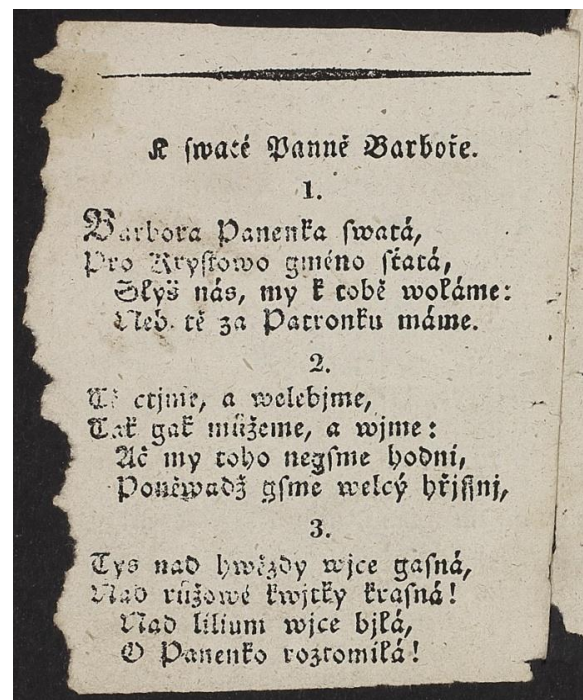 K swaté Panně Barboře.
1.
Barbora Panenka swatá,
Pro Krystowo gméno sťatá,
Slyš nás, my k tobě woláme:
Neb tě za Patronku máme.
2.
Tě ctjme, a welebjme,
Tak gak můžeme, a wjme:
Ač my toho negsme hodni,
Poněwadž gsme welcý hřjssnj,
3.
Tys nad hwězdy wjce gasná,
Nad růžowé kwjtky krasná!
Nad lilium wjce bjlá,
O Panenko roztomilá!